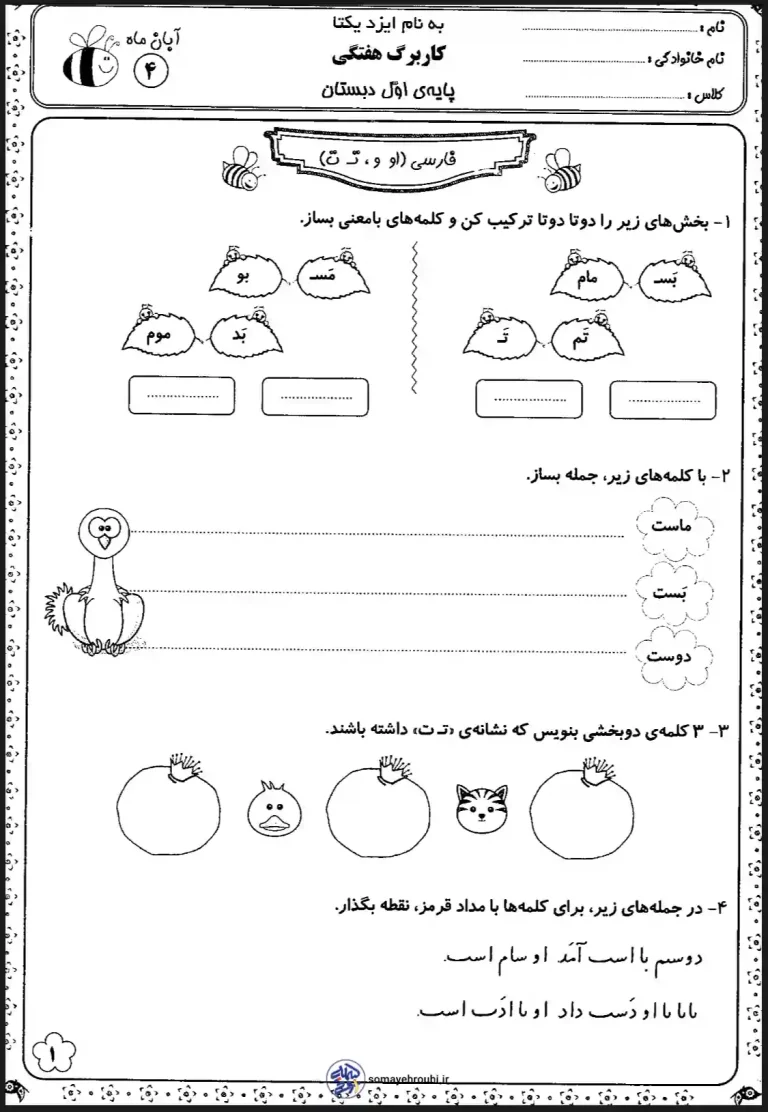 نام :
نام خانوادگی :
کلاس :
به نام ایزد یکتا
کاربرگ هفتگی
پایه‌ی اوّل دبستان
آبان ماه
۴
فارسی (او و ، تـ ت)
۱- بخش‌های زیر را دوتا دوتا ترکیب کن و کلمه‌های بامعنی بساز.
بَسـ مام
تَم تَـ
مَسـ بو
بَد موم
۲- با کلمه‌های زیر، جمله بساز.
ماست
بَست
دوست
۳- ۳ کلمه‌ی دوبخشی بنویس که نشانه‌ی «تـ ت» داشته باشند.
۴- در جمله‌های زیر، برای کلمه‌ها با مداد قرمز، نقطه بگذار.
آمَد او سام است.
او دَست داد او با ادَب است.
۱
somayehrouhi.ir